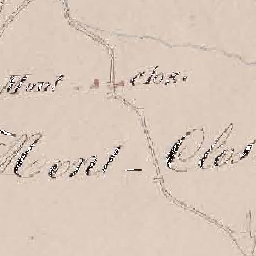 Mont - Clos.
Mont - Clos